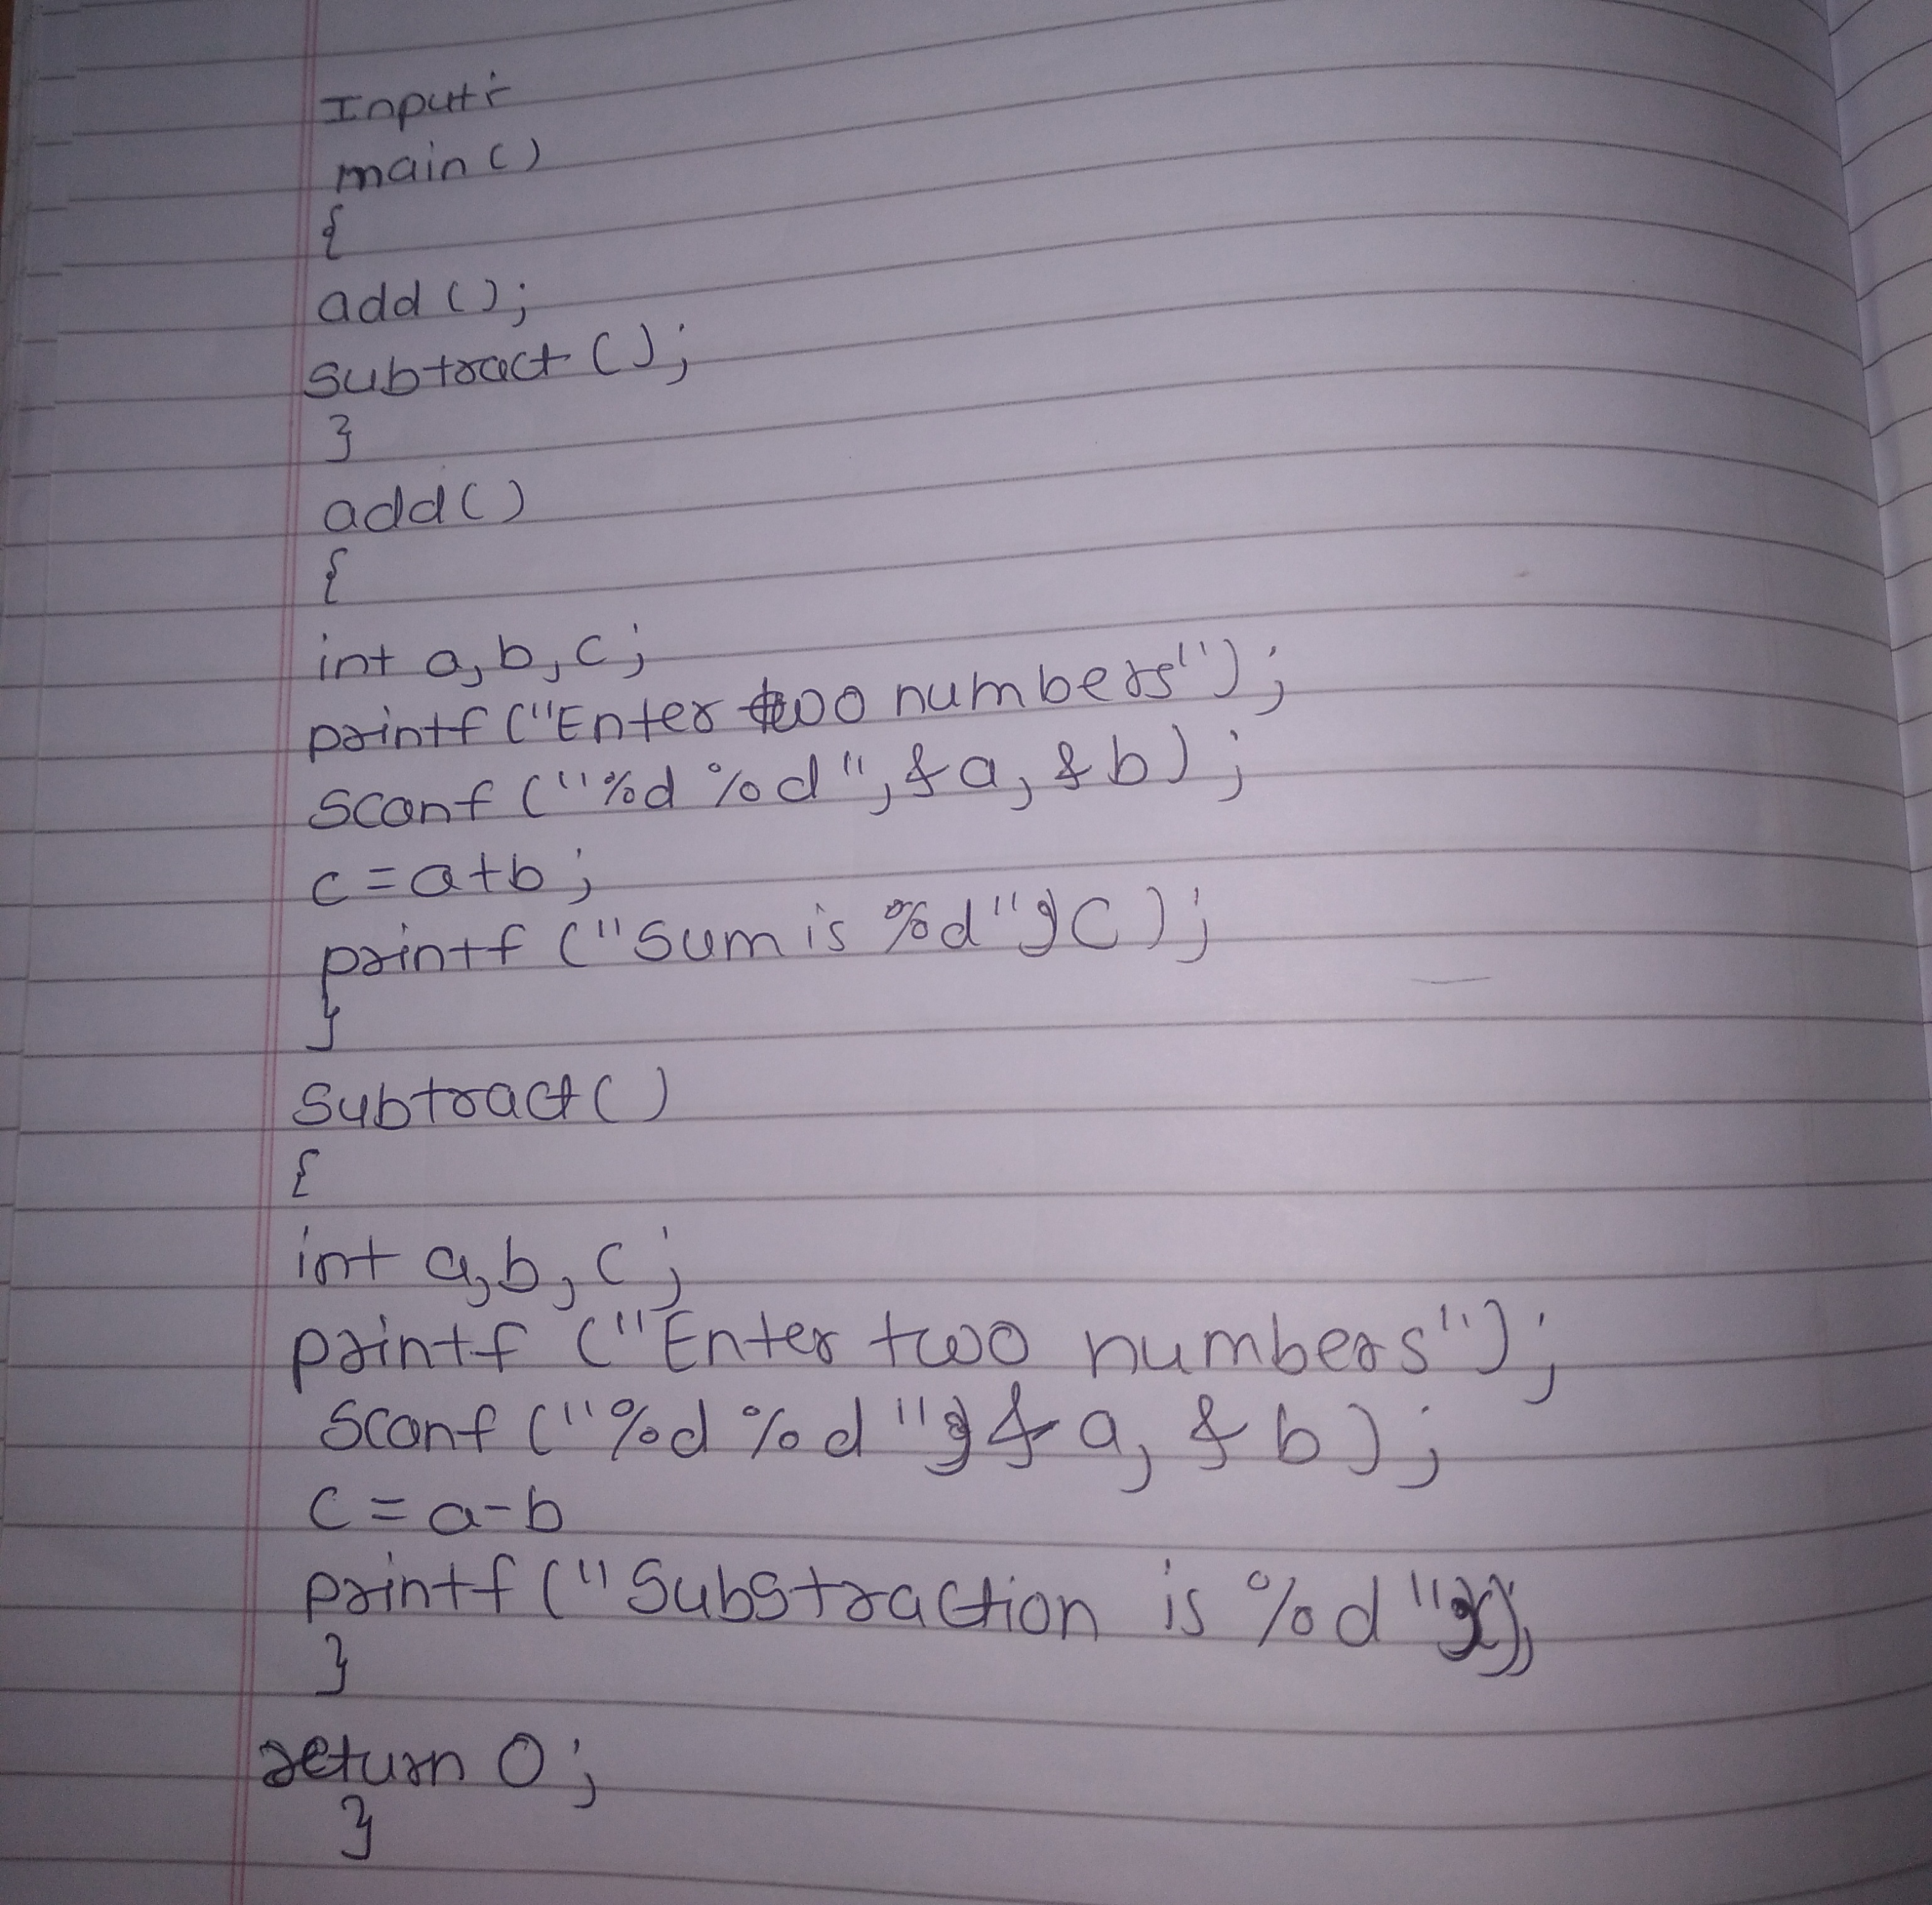 Input:-
main()
{
add();
subtract();
}
add()
{
int a,b,c;
printf("Enter two numbers");
scanf("%d %d",&a,&b);
c=a+b;
printf("Sum is %d",c);
}
Subtract()
{
int a,b,c;
printf("Enter two numbers");
scanf("%d %d",&a,&b);
c=a-b
printf("Substraction is %d",c);
}
return 0;
}